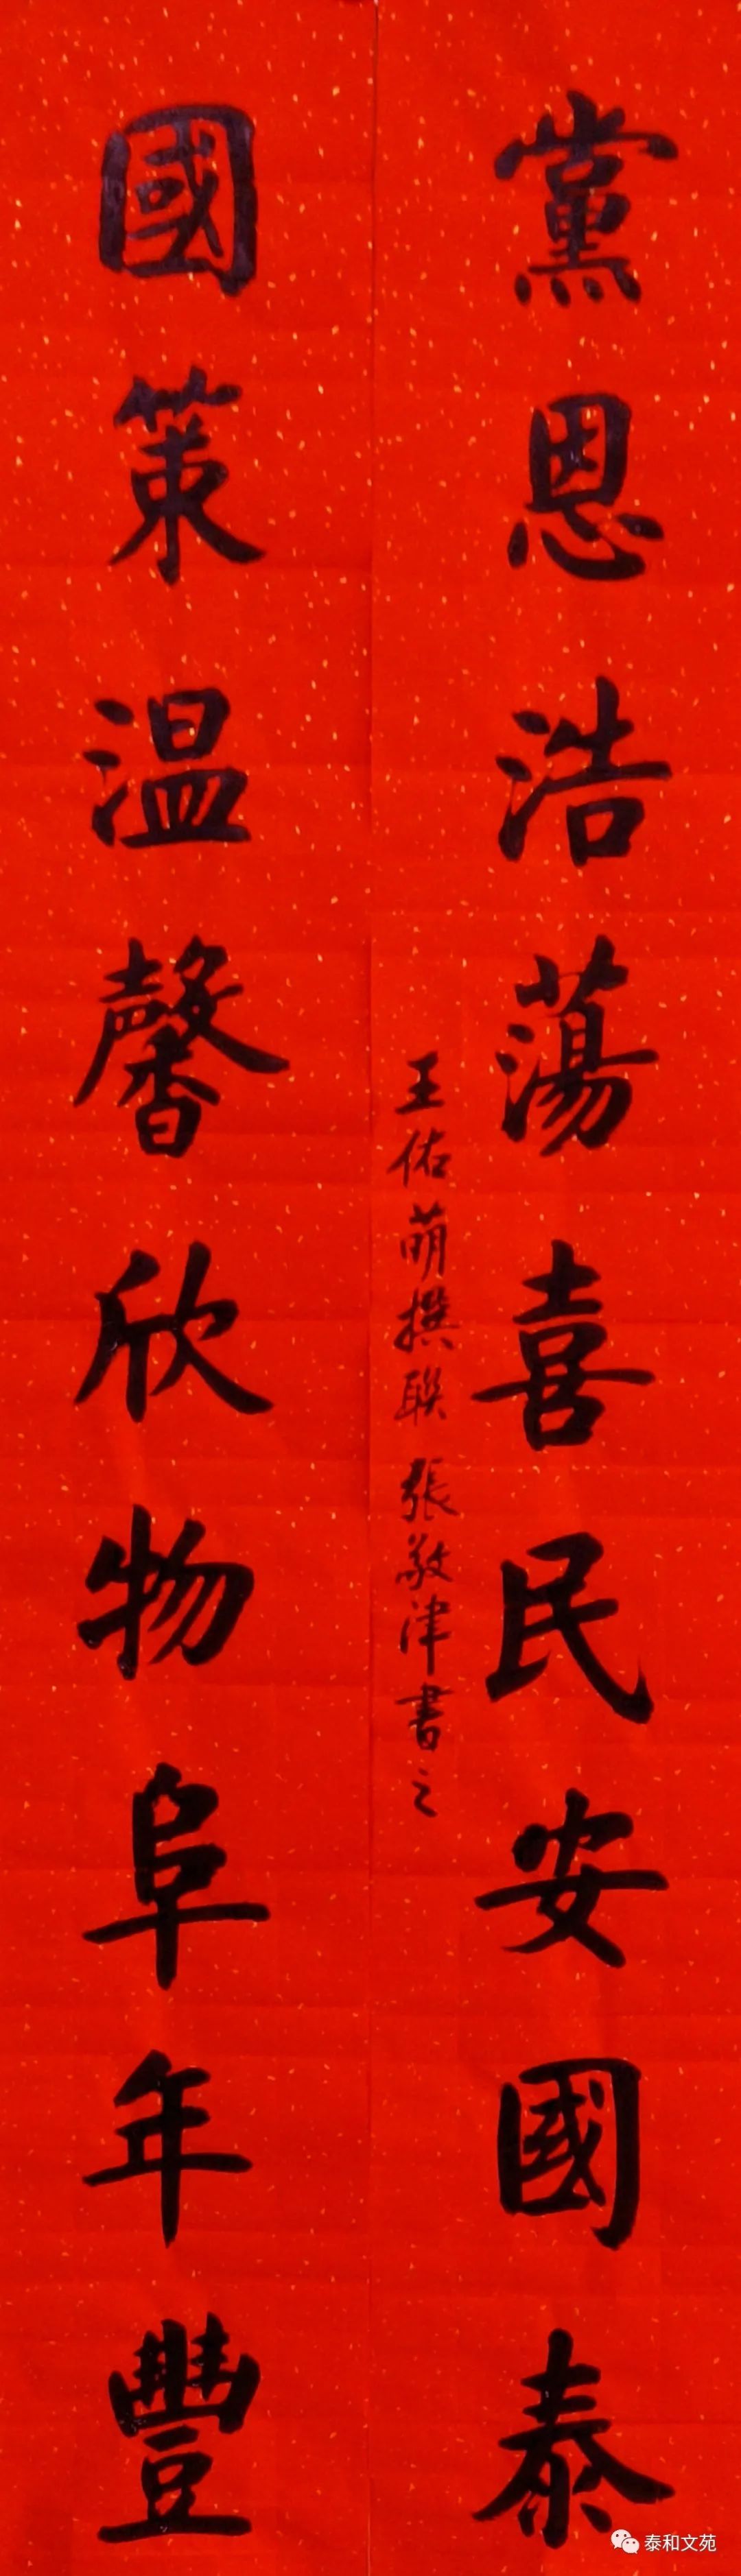 黨恩浩蕩喜民安國泰
王佑萌撰聯 張敬津書之
國策温馨欣物阜年豐
泰和文苑